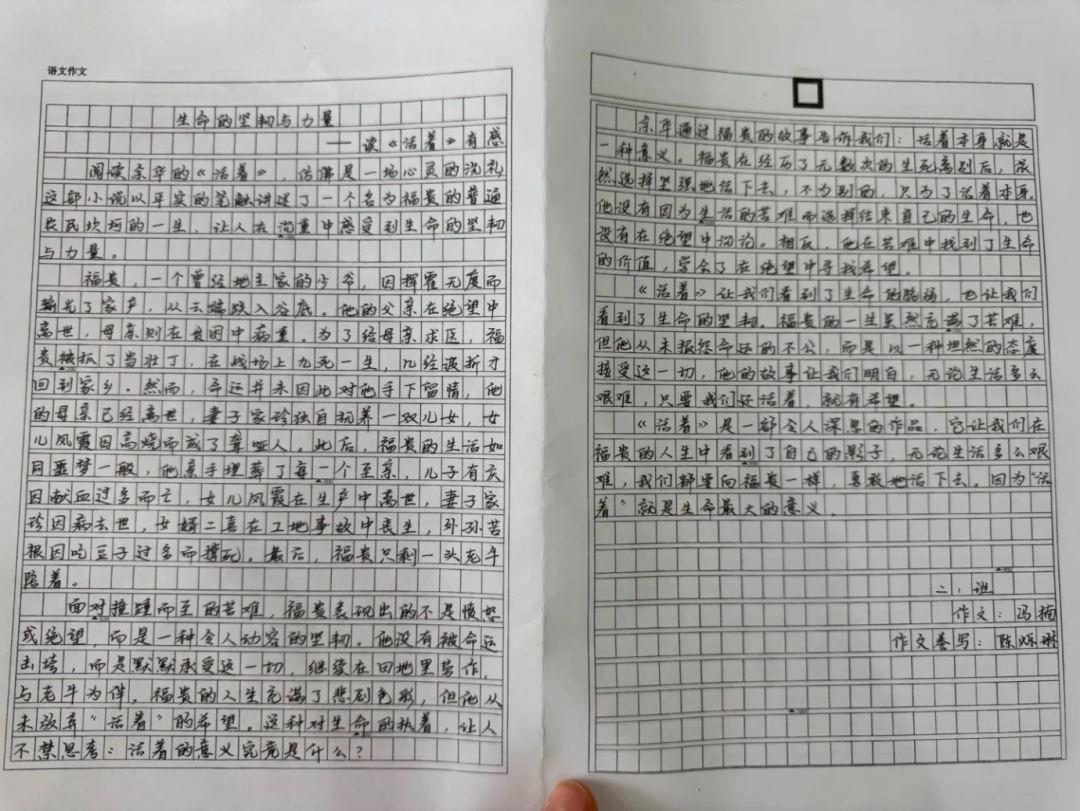 语文作文
生命的坚韧与力量
——读《活着》有感
阅读余华的《活着》，仿佛是一场心灵的洗礼
这部小说以平实的笔触讲述了一个名为福贵的普通
农民坎坷的一生，让人在沉重中感受到生命的坚韧
与力量。
福贵，一个曾经地主家的少爷，因挥霍无度而
输光了家产，从云端跌入谷底。他的父亲在绝望中
离世，母亲则在贫困中病重。为了给母亲求医，福
贵被抓了当壮丁，在战场上九死一生，几经波折才
回到家乡。然而，命运并未因此对他手下留情，他
的母亲已经离世，妻子家珍独自抚养一双儿女，女
儿凤霞因高烧而成了聋哑人。此后，福贵的生活如
同噩梦一般，他亲手埋葬了每一个至亲，儿子有庆
因献血过多而亡，女儿凤霞在生产中离世，妻子家
珍因病去世，女婿二喜在工地事故中丧生，外孙苦
根因吃豆子过多而撑死。最后，福贵只剩一头老牛
陪着。
面对接踵而至的苦难，福贵表现出的不是愤怒
或绝望，而是一种令人动容的坚韧。他没有被命运
击垮，而是默默承受这一切，继续在田地里劳作，
与老牛为伴。福贵的人生充满了悲剧色彩，但他从
未放弃“活着”的希望。这种对生命的执着，让人
不禁思考：活着的意义究竟是什么？
余华通过福贵的故事告诉我们：活着本身就是
一种意义。福贵在经历了无数次的生死离别后，依
然选择坚强地活下去，不为别的，只为了活着本身。
他没有因为生活的苦难而选择结束自己的生命，也
没有在绝望中沉沦。相反，他在苦难中找到了生命
的价值，学会了在绝望中寻找希望。
《活着》让我们看到了生命的脆弱，也让我们
看到了生命的坚韧。福贵的一生虽然充满了苦难，
但他从未报怨命运的不公，而是以一种坦然的态度
接受这一切，他的故事让我们明白，无论生活多么
艰难，只要我们还活着，就有希望。
《活着》是一部令人深思的作品，它让我们在
福贵的人生中看到了自己的影子，无论生活多么艰
难，我们都要向福贵一样，勇敢地活下去，因为“活
着”就是生命最大的意义。
二、1班
作文：冯楠
作文誊写：陈烁琳